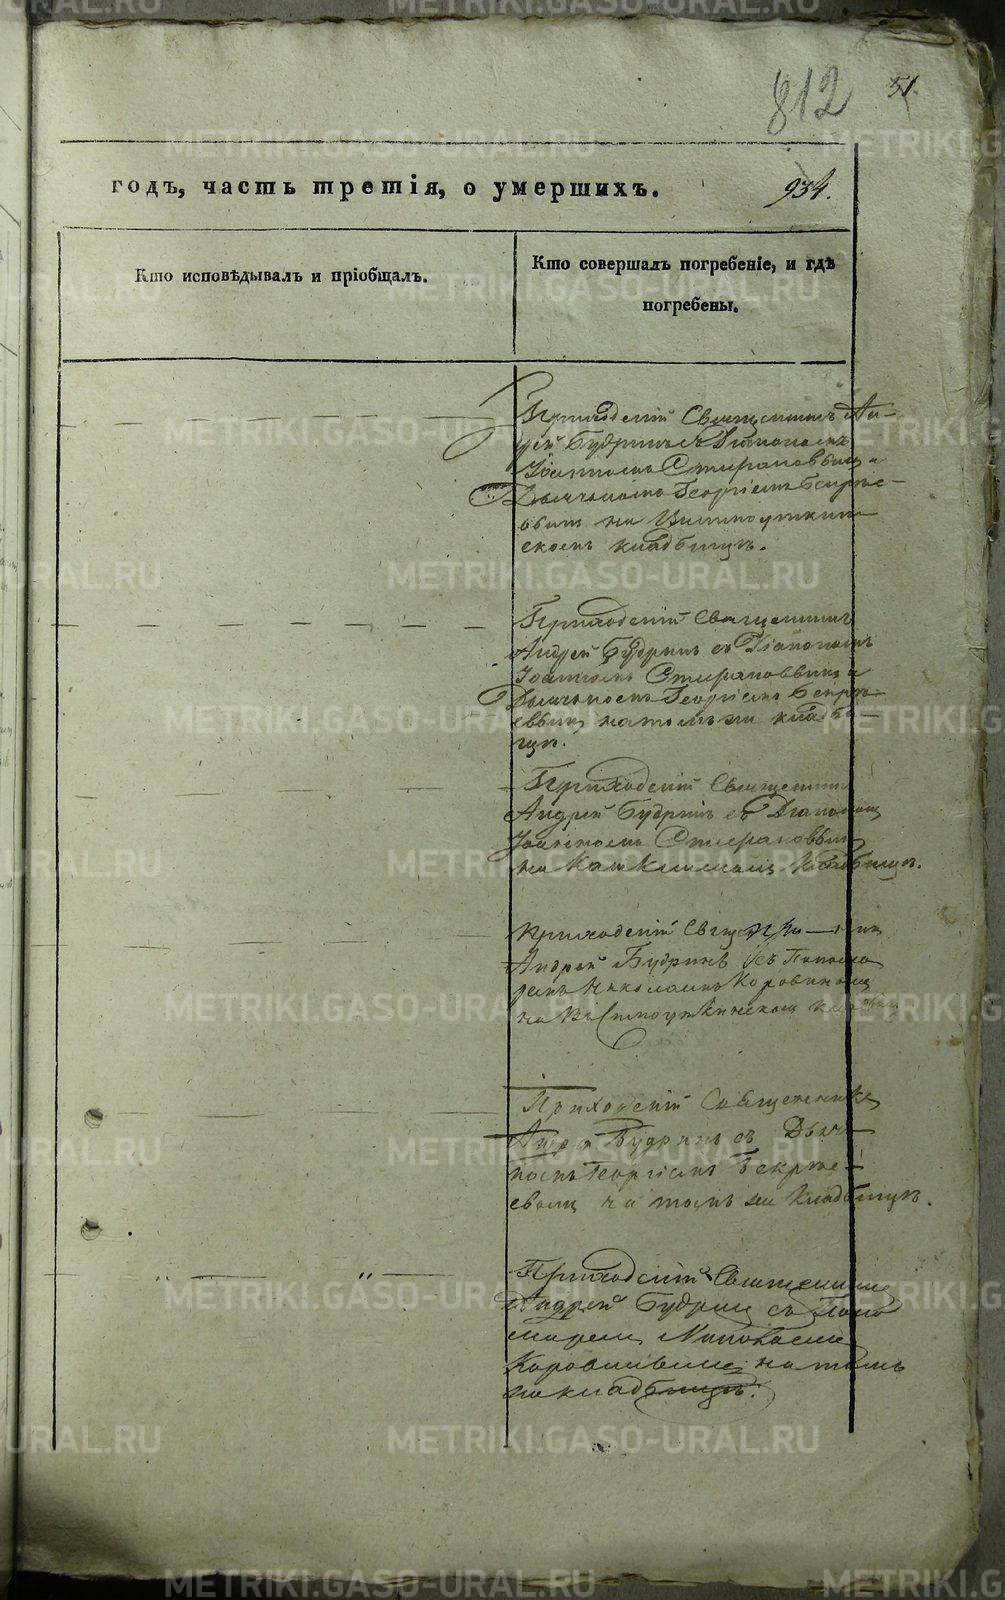 812
51.
годъ, часть третія, о умершихъ.
934.
Кто исповѣдывалъ и пріобщалъ.
Кто совершалъ погребеніе, и гдѣ
погребены.
Приходскій Священникъ Ан-
дрей Будринъ съ Діакономъ
Іоанномъ Стефановымъ и
Дьячкомъ Георгіемъ
на
скомъ кладбищѣ.
Приходскій Священникъ
Андрей Будринъ съ Діакономъ
Іоанномъ Стефановымъ и
Дьячкомъ Георгіемъ
на томъ же кладби-
щѣ.
Приходскій Священникъ
Андрей Будринъ съ Діакономъ
Іоанномъ Стефановымъ
на кладбищѣ.
Приходскій Священникъ
Андрей Будринъ съ Понома-
ремъ Николаемъ Коровинымъ
на
Приходскій Священникъ
Андрей Будринъ съ Дьяч-
комъ Георгіемъ
на томъ же кладбищѣ.
Приходскій Священникъ
Андрей Будринъ съ Поно-
маремъ Николаемъ
Коровинымъ на томъ
же кладбищѣ.
METRIKI.GASO-URAL.RU